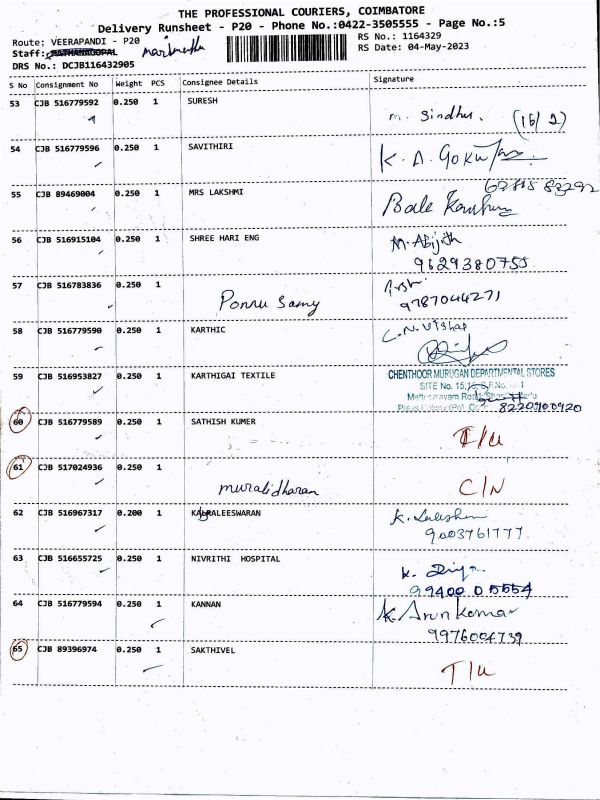 THE PROFESSIONAL COURIERS, COIMBATORE
Delivery Runsheet - P20 - Phone No.:0422-3505555 - Page No.:5
Route: VEERAPANDI - P20
RS No.: 1164329
Staff:
RS Date: 04-May-2023
DRS No.: DCJB116432905
S No Consignment No Weight PCS Consignee Details Signature
53 CJB 516779592 0.250 1 SURESH
m. Sindhu. (16/2)
54 CJB 516779596 0.250 1 SAVITHIRI
K. A.
55 CJB 89469004 0.250 1 MRS LAKSHMI
56 CJB 516915104 0.250 1 SHREE HARI ENG M. Abijith
9629380755
57 CJB 516783836 0.250 1
Ponnu Samy 9787044271
58 CJB 516779590 0.250 1 KARTHIC
59 CJB 516953827 0.250 1 KARTHIGAI TEXTILE CHENTHOOR MURUGAN DEPARTMENTAL STORES
SITE No. 15,
8220900920
60 CJB 516779589 0.250 1 SATHISH KUMER
61 CJB 517024936 0.250 1
muralidharan C/N
62 CJB 516967317 0.200 1
9003761777
63 CJB 516655725 0.250 1 NIVRITHI HOSPITAL
99400 05554
64 CJB 516779594 0.250 1 KANNAN K. Arun kumar
9976004739
65 CJB 89396974 0.250 1 SAKTHIVEL
T/U